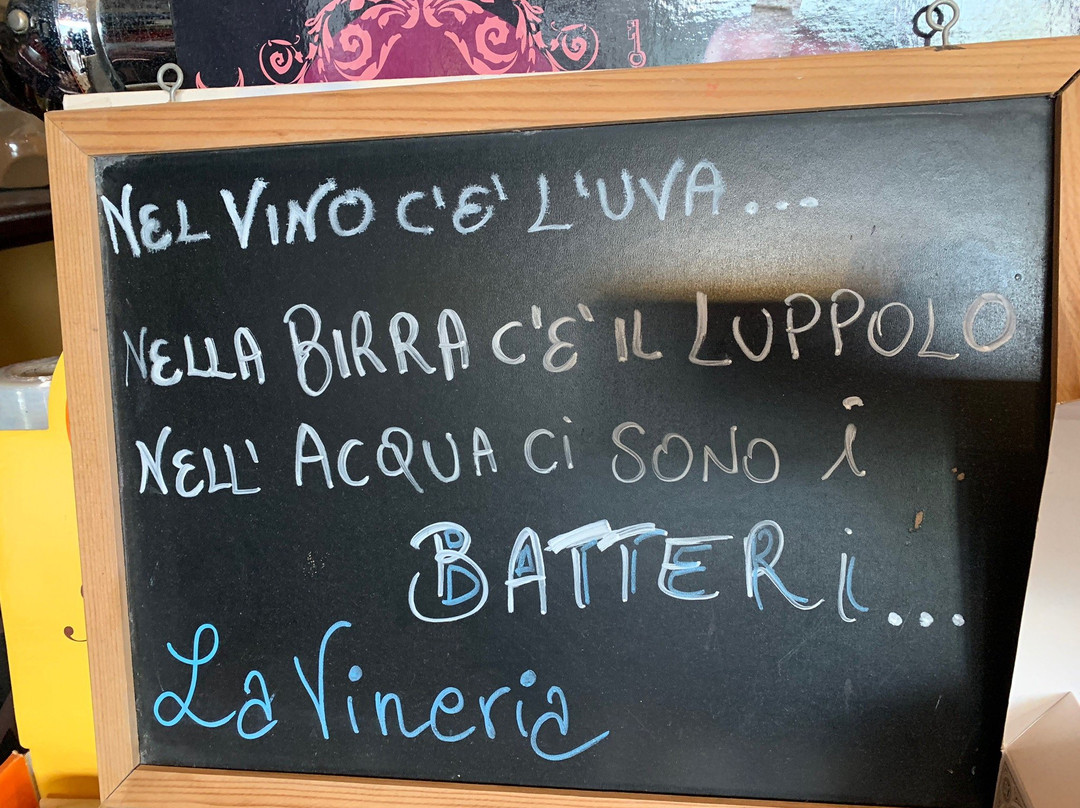 NEL VINO C'E' L'UVA...
NELLA BIRRA C'E' IL LUPPOLO
NELL' ACQUA Ci SONO i
BATTERi...
La Vineria